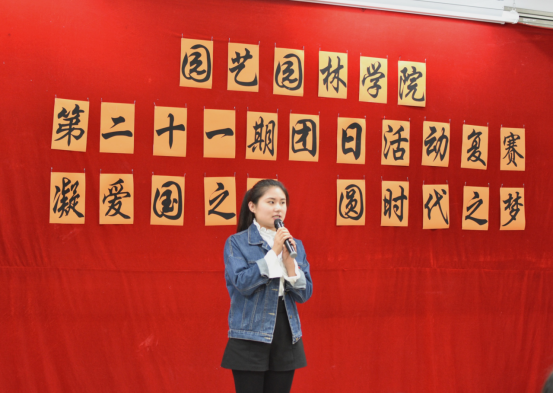 园艺园林学院
第二十一期团日活动复赛
凝爱国之 圆时代之梦